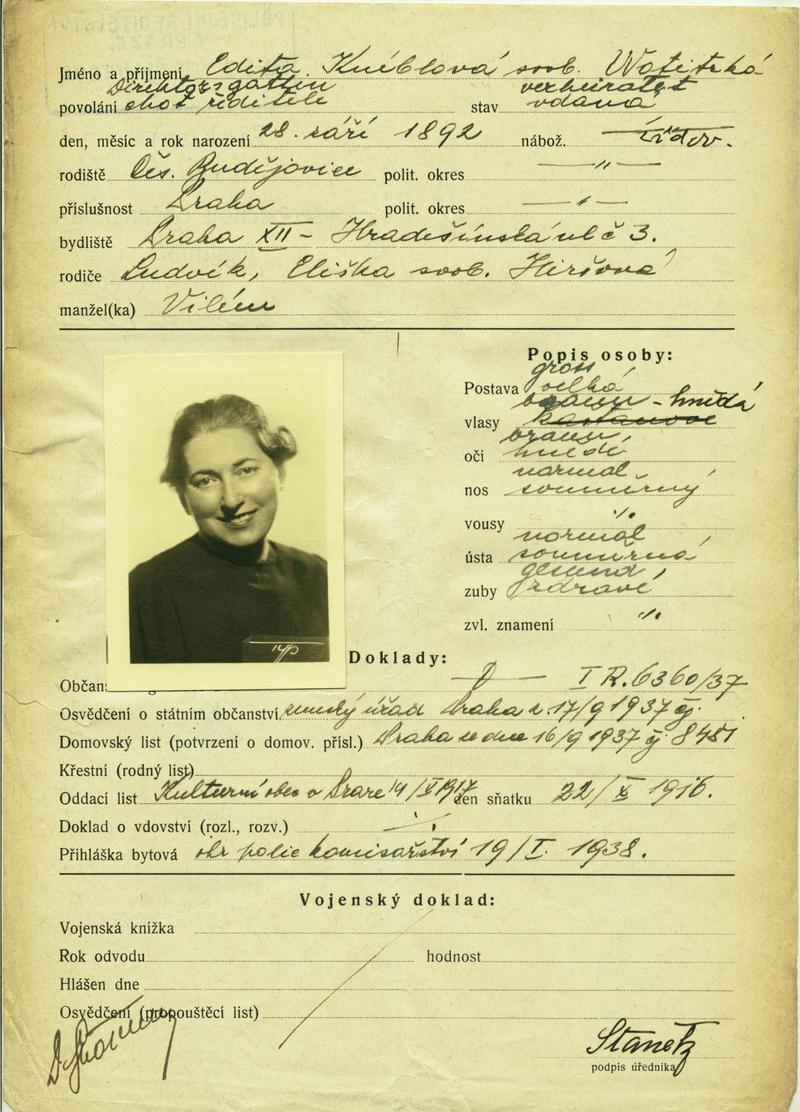 POLICEJNÍ ŘEDITELSTVÍ
PRAZE.
Jméno a příjmení Edita Knéblová roob. Wotitzká
Direktorsgattin verheiratet
povolání choť ředitele stav vdaná
den, měsíc a rok narození 28. září 1892 nábož. židov.
rodiště Čes. Budějovice polit. okres — " —
příslušnost Praha polit. okres — " —
bydliště Praha XII – Hradešínská ul č 3.
rodiče Ludvík, Eliška roob. Hiršová
manžel(ka) Vilém
Popis osoby:
gross
Postava velká
braun - hnědá
vlasy kaštanové
braun
oči hnědé
normal
nos souměrný
vousy ·/.
normal
ústa souměrná
gesund
zuby zdravé
zvl. znamení ·/.
Doklady:
Občan. I R. 6360/37
Osvědčení o státním občanství zemský úřad Praha z 17/9 1937 čj.
Domovský list (potvrzení o domov. přísl.) Praha ze dne 16/9 1937 čj 8451
Křestní (rodný list)
Oddací list Kulturní obec v Praze 14/ 1917 den sňatku 22/X 1916.
Doklad o vdovství (rozl., rozv.) ·/.
Přihláška bytová obv police komisařství 19/I. 1938.
Vojenský doklad:
Vojenská knížka
Rok odvodu hodnost
Hlášen dne
Osvědčení (propouštěcí list)
Stanetz
podpis úředníka